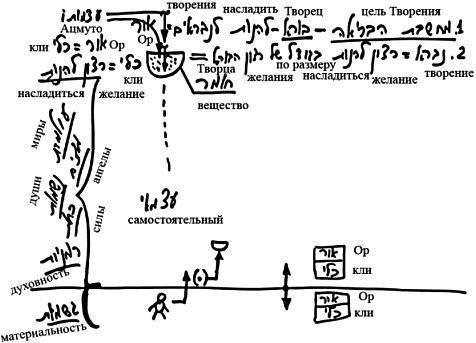 творения насладить Творец цель Творения
1. מחשבת הבריאה - בורא - להנות לנבראים
עצמותו
Ацмуто
אור
Ор
кли כלי = אור Ор
2. נברא = רצון להנות בגודל של רצון הבורא =
כלי = רצון להנות
кли
Творца желания по размеру насладиться желание творение
насладиться желание
חומר
вещество
миры
ангелы
עצמאי
самостоятельный
души
силы
רוחניות
Ор
אור
כלי
кли
духовность
Ор
אור
גשמיות
כלי
кли
материальность